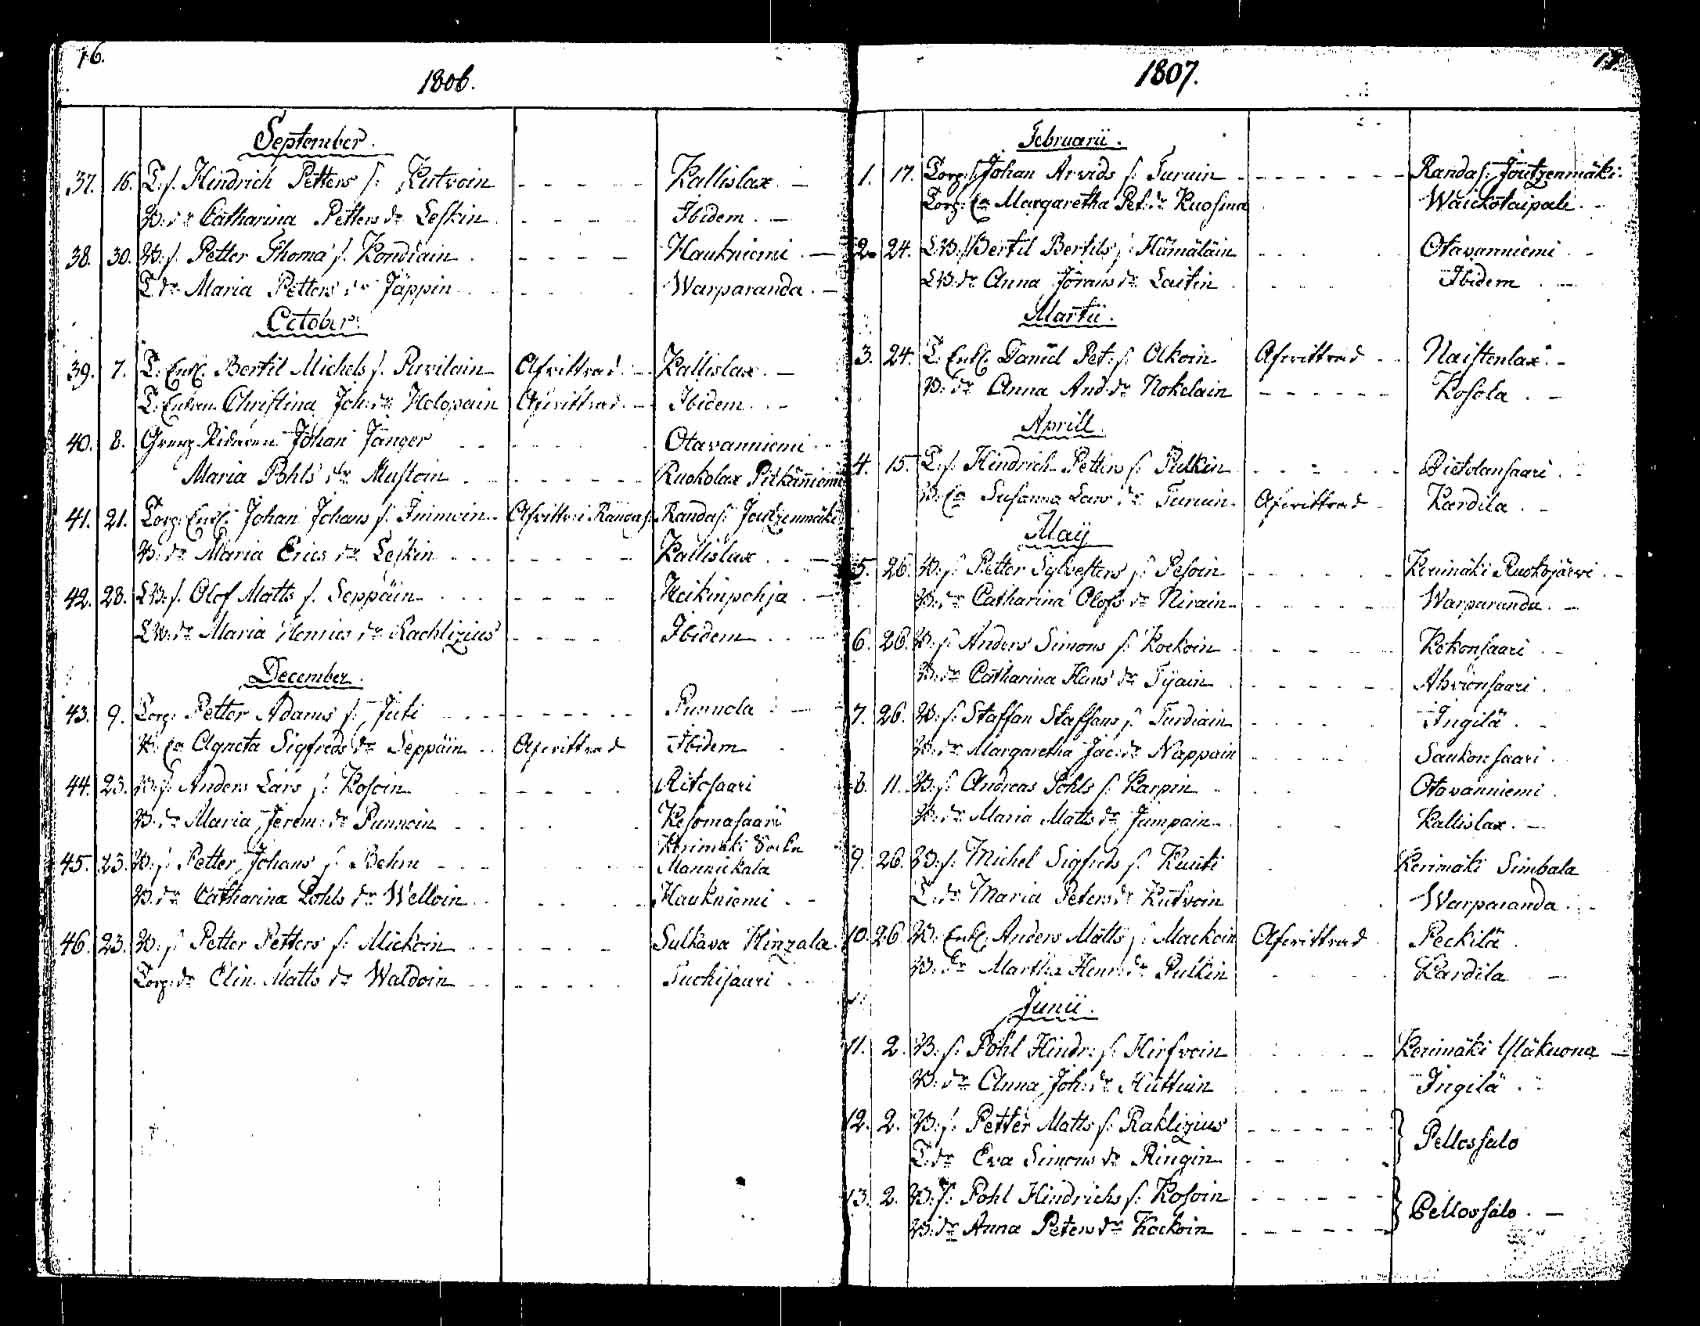 16.
1806.
September.
37. 16. T. s. Hindrich Petters s: Kutvoin - - - - - Kallislax. -
B: dr Catharina Petters dr Leskin - - - - Ibidem. -
38. 30. B: s. Petter Thomæ s. Kondiain - - - - Haukniemi. -
T. dr Maria Petters dr Jäppin - - - - Warparanda. -
October.
39. 7. T. Enkl. Bertil Michels s. Revilain Afvittrad. - Kallislax. -
T. Enkan Christina Joh: dr Holopain Afvittrad. - Ibidem. -
40. 8. Johan Jänger - - - Otavanniemi
Maria Pohls dr Mustoin - - - - Ruokolax Pitkäniemi
41. 21. Torp: Enkl. Johan Johans s. Immoin Afvittr. i Randas. Randas: Joutzenmäki
B: dr Maria Erics dr Leskin - - - - Kallislax. -
42. 28. LB: s. Olof Matts s. Seppäin - - - - Heikinpohja. -
LB: dr Maria Henrics dr Rachlizius - - - - Ibidem -
December.
43. 9. Torp: Petter Adams s: Juti - - - - Punnola: -
B: Ea Agneta Sigfreds dr Seppäin Afvittrad Ibidem
44. 23. B: s: Anders Lars s: Kosoin - - - - Ritosaari
B: dr Maria Jerem: dr Punnoin - - - Kesomasaari
Kerimäki Sockn
45. 23. B: s. Petter Johans s: Behm - - - - Mannickala
B: dr Catharina Pohls dr Welloin - - - Haukniemi -
46. 23. B: s: Petter Petters s: Mickoin - - - - Sulkava Hinzala.
Torp: dr Elin Matts dr Waldoin - - - - Tuckisauri
17.
1807.
Februarii.
1. 17. Torp: s. Johan Arvids s: Turuin - - - - Randas. Joutzenmäki.
Torp: Ea Margaretha Pet: dr Kuosma Waickotaipale.
2. 24. LB: s. Bertil Bertils s: Hämäläin - - - Otavanniemi
LB: dr Anna Jörans dr Laitin - - - Ibidem -
Martii.
3. 24. T. Enkl. Daniel Pet: s: Olkoin Afvittrad - Naistenlax. -
B: dr Anna And: dr Nokelain - - - - Kosola. -
Aprill.
4. 15. T. s. Hindrich Petters s: Pulkin - - - - Pietolansaari.
B: Ea Susanna Lars dr Turuin Afvittrad Kardila. -
Maij
5. 26. B: s: Petter Sylvesters s: Pesoin - - - - Kerimäki Ruokojärvi. -
B: dr Catharina Olofs dr Nirain - - - - Warparanda. -
6. 26. B: s: Anders Simons s: Kockoin - - - - Kokonsaari
B: dr Catharina Hans dr Tijain - - - - Ahvionsaari.
7. 26. B: s: Staffan Staffans s: Turdiain - - - Ingilä.
B: dr Margaretha Jac: dr Nappain - - - - Saukonsaari.
8. 11. B: s: Andreas Pohls s: Karpin - - Otavanniemi.
B: dr Maria Matts dr Jumpain - - Kallislax. -
9. 26. B: s: Michel Sigfrids s: Kuuti Kerimäki Simbala
T. dr Maria Peters dr Kutvoin Warparanda.
10. 26. B: Enkl. Anders Matts s: Mackoin Afvittrad. Peckilä.
B: dr Martha Henr: dr Pulkin - - - Kardila -
Junii.
11. 2. B: s: Pohl Hindr: s: Hirfvoin - - - - Kerimäki Yläkuona -
B: dr Anna Joh: dr Huttuin - - - Ingilä.
12. 2. B: s: Petter Matts s: Raklizius - - - - Pellossalo
T. dr Eva Simons dr Ringin - - - -
13. 2. B: s: Pohl Hindrichs s: Kosoin - - - - Pellossalo. -
B: dr Anna Peters dr Kockoin - - - -